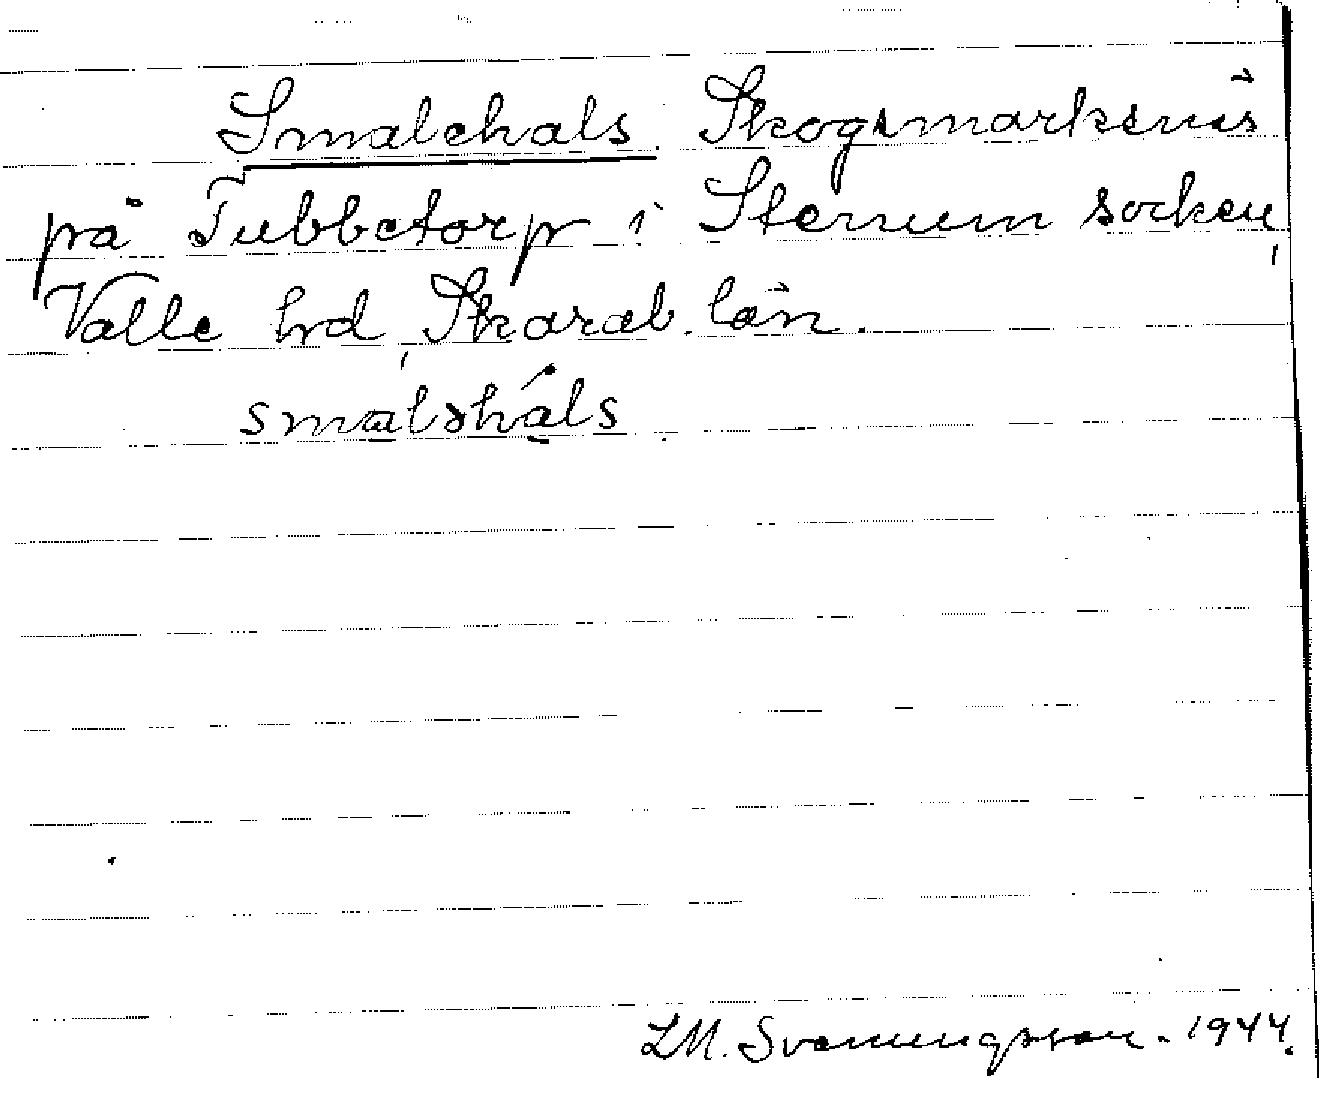 Smalehals. Skogsmarksnäs
på Tubbetorp i Stenum socken,
Valle hrd, Skarab. län.
smaləháls
LM. Svenungsson. 1944.